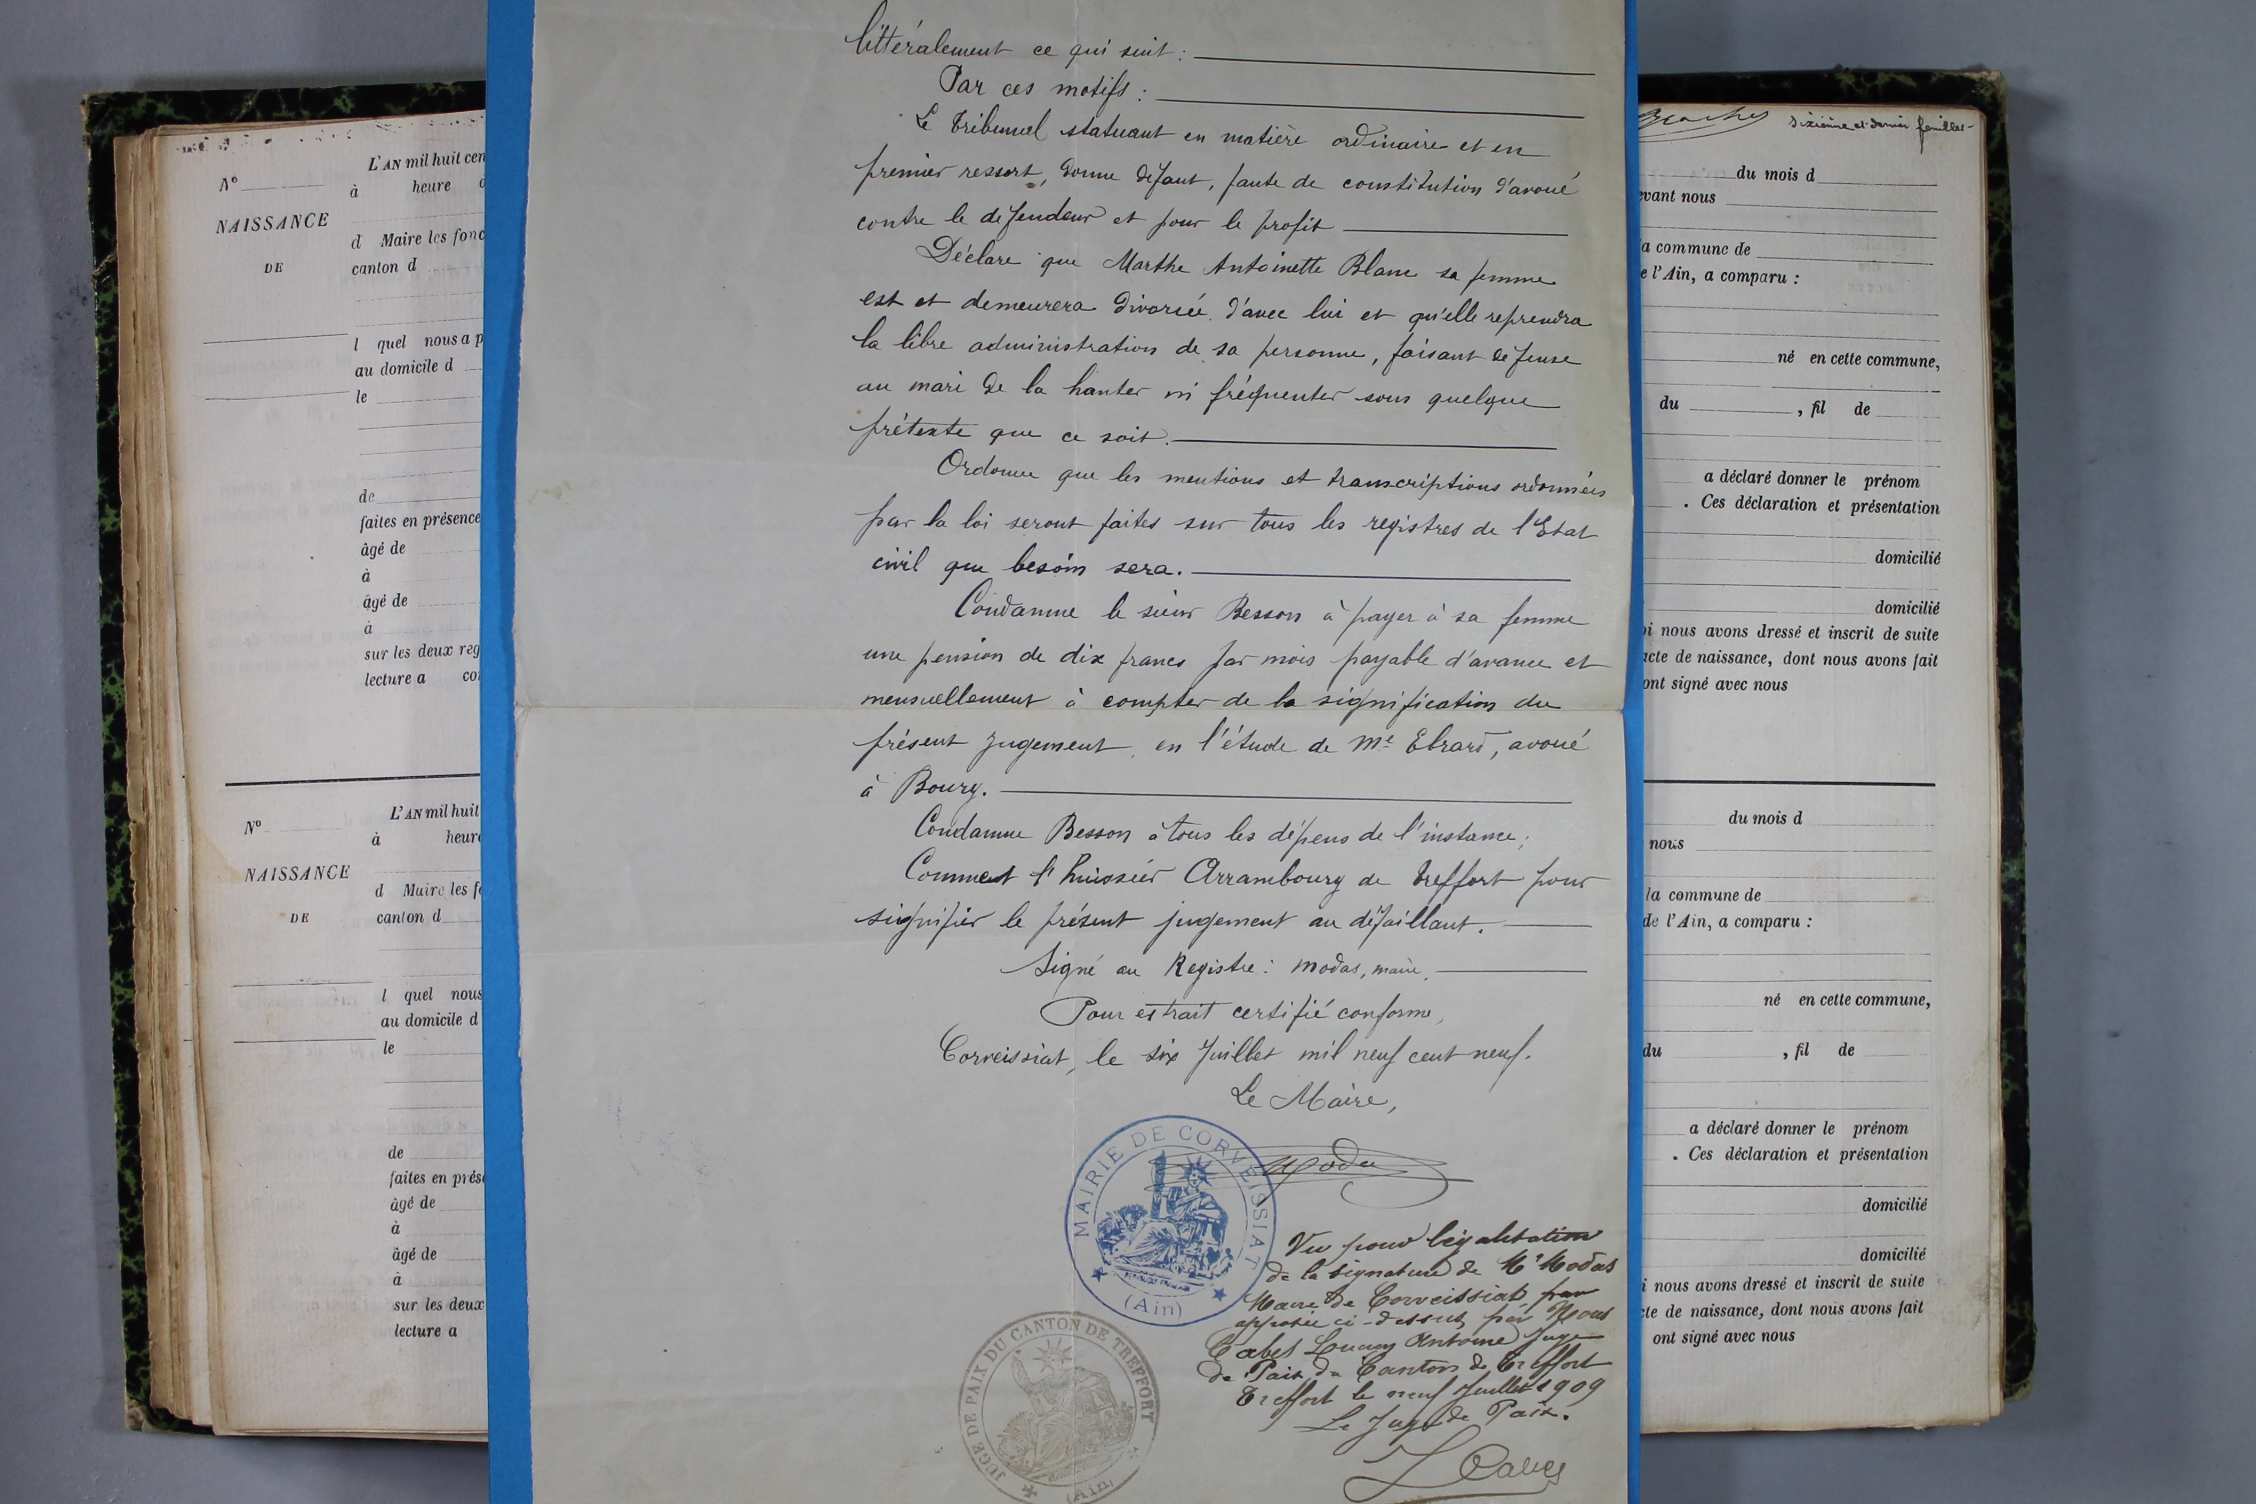 N°
NAISSANCE
DE
L'AN mil huit cen
à heure
d Maire les fonc
canton d
l quel nous a p
au domicile d
le
de
faites en présence
âgé de
à
âgé de
à
sur les deux reg
lecture a co
N°
NAISSANCE
DE
L'AN mil huit
à heure
d Maire les f
canton d
l quel nous
au domicile d
le
de
faites en prés
âgé de
à
âgé de
à
sur les deux
lecture a
littéralement ce qui suit :
Par ces motifs :
Le Tribunal statuant en matière ordinaire et en
premier ressort, donne défaut, faute de constitution d'avoué
contre le défendeur et pour le profit
Déclare que Marthe Antoinette Blanc sa femme
est et demeurera divorcée d'avec lui et qu'elle reprendra
la libre administration de sa personne, faisant défense
au mari de la hanter ni fréquenter sous quelque
prétexte que ce soit.
Ordonne que les mentions et transcriptions ordonnées
par la loi seront faites sur tous les registres de l'Etat
civil que besoin sera.
Condamne le sieur Besson à payer à sa femme
une pension de dix francs par mois payable d'avance et
mensuellement à compter de la signification du
présent jugement, en l'étude de Me Ebrard, avoué
à Bourg.
Condamne Besson à tous les dépens de l'instance;
Commet l'huissier Arrambourg de Treffort pour
signifier le présent jugement au défaillant.
Signé au Registre : Modas, maire.
Pour extrait certifié conforme,
Corveissiat, le six Juillet mil neuf cent neuf.
Le Maire,
Modas
MAIRIE DE CORVEISSIAT
(Ain)
Vu pour légalisation
de la signature de Mr Modas
Maire de Corveissiat
apposée ci-dessus par Nous
Cabet Antoine Juge
de Paix du Canton de Treffort
Treffort le neuf Juillet 1909
Le Juge de Paix.
JUGE DE PAIX DU CANTON DE TREFFORT
(Ain)
Sixième et dernier feuillet
du mois d
evant nous
a commune de
e l'Ain, a comparu :
né en cette commune,
du , fil de
a déclaré donner le prénom
. Ces déclaration et présentation
domicilié
domicilié
oi nous avons dressé et inscrit de suite
acte de naissance, dont nous avons fait
ont signé avec nous
du mois d
nous
la commune de
de l'Ain, a comparu :
né en cette commune,
du , fil de
a déclaré donner le prénom
. Ces déclaration et présentation
domicilié
domicilié
i nous avons dressé et inscrit de suite
cte de naissance, dont nous avons fait
ont signé avec nous